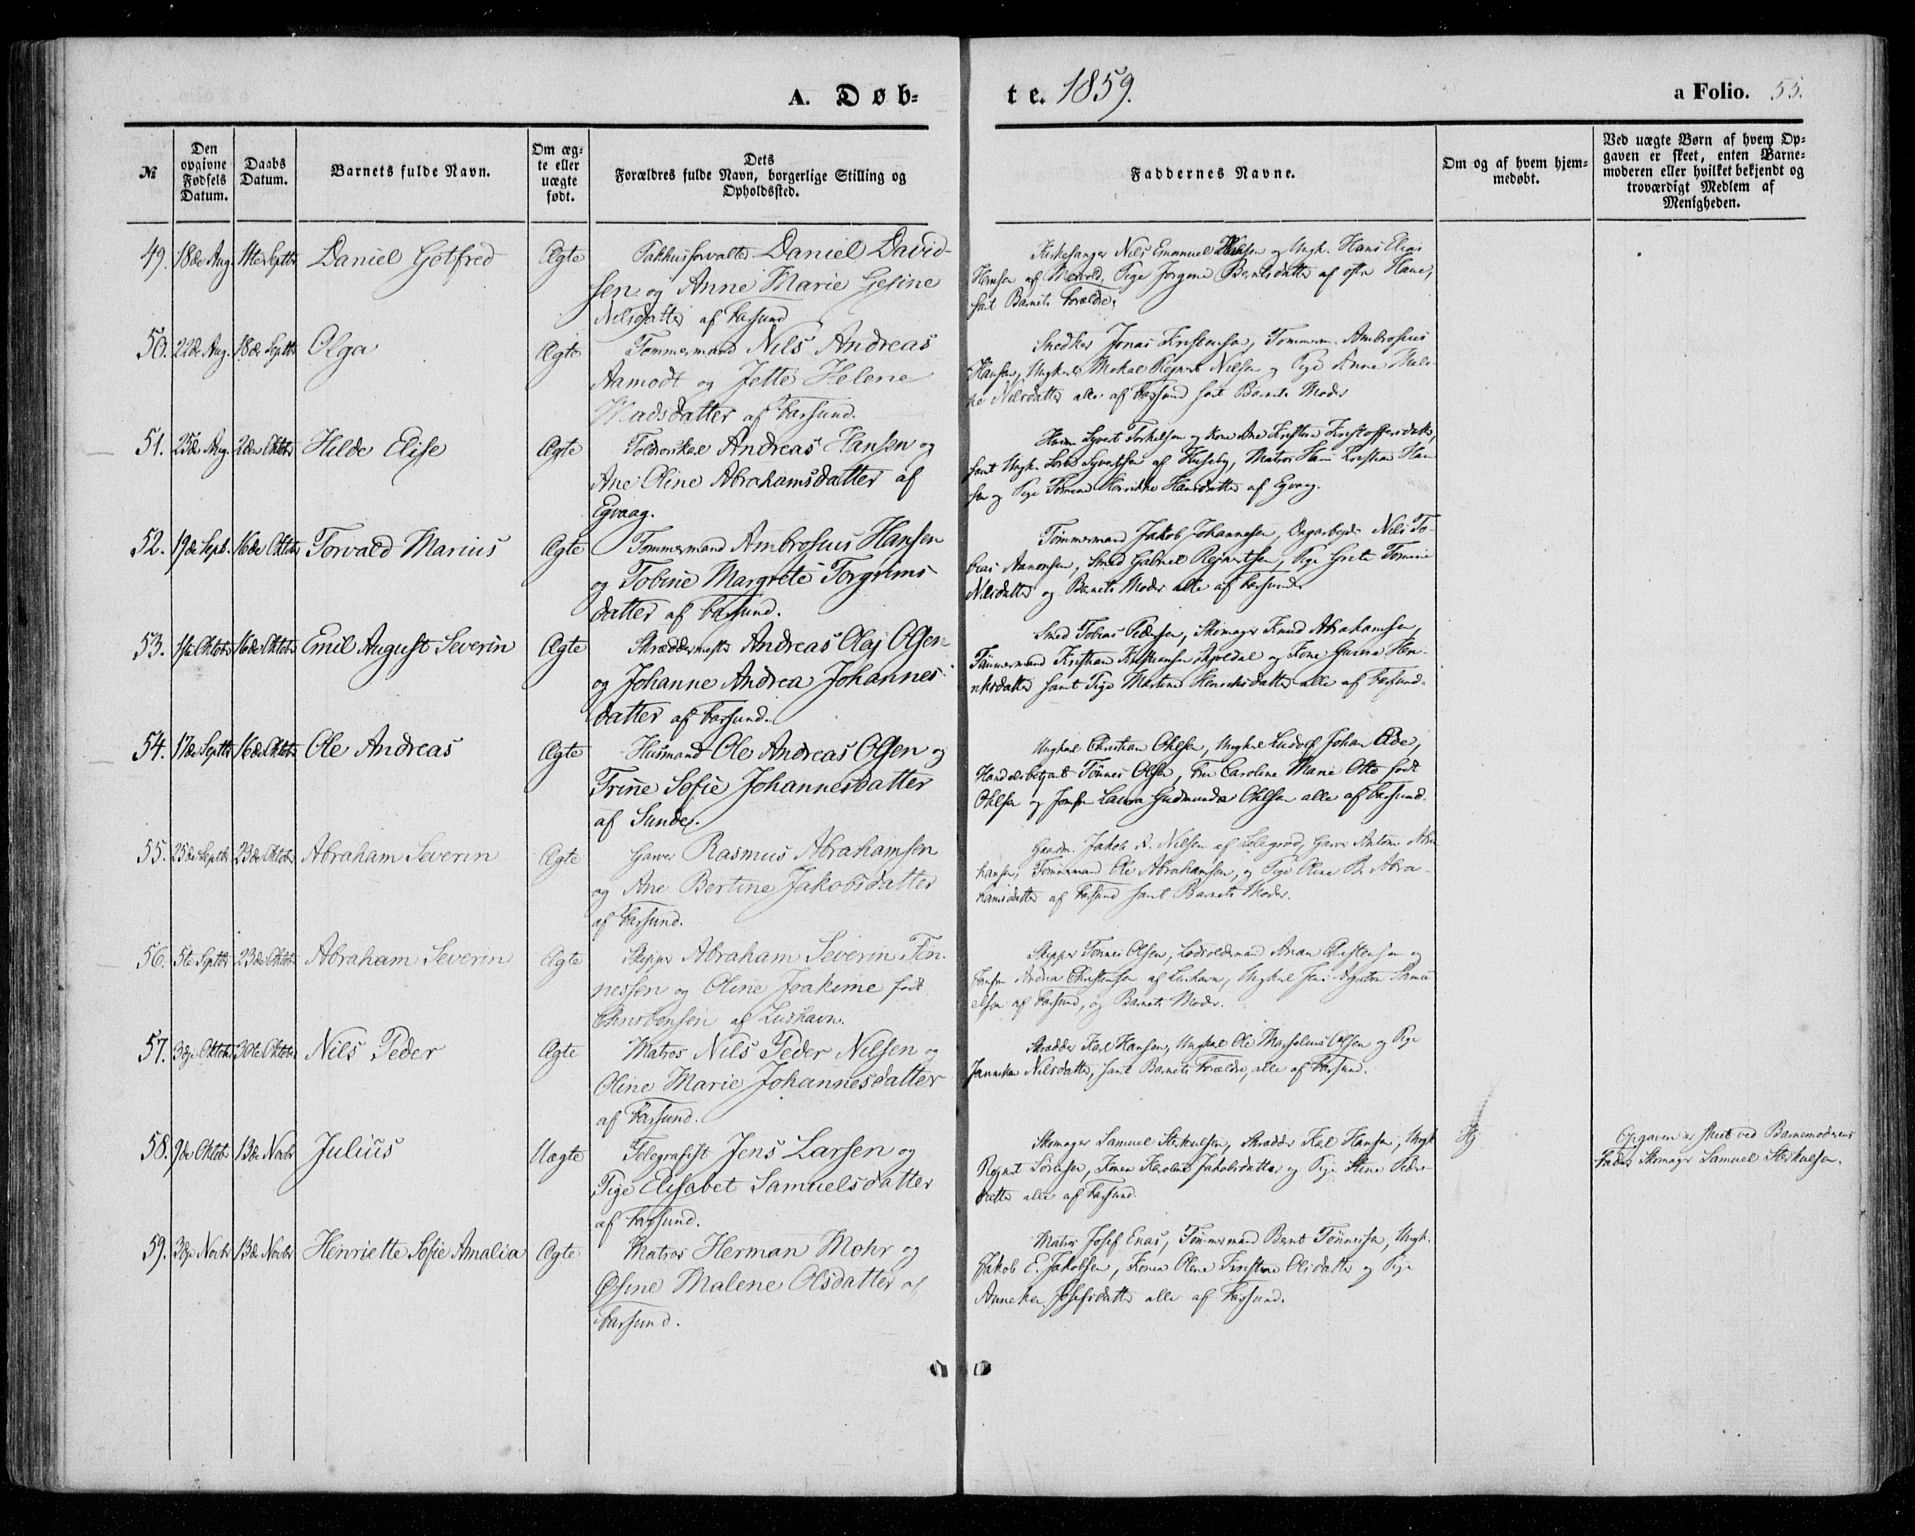 A. Døb-
te. 1859.
a Folio. 55.
№
Den opgivne Fødsels Datum.
Daabs Datum.
Barnets fulde Navn.
Om ægte eller uægte født.
Dets Forældres fulde Navn, borgerlige Stilling og Opholdssted.
Faddernes Navne.
Om og af hvem hjemmedøbt.
Ved uægte Børn af hvem Opgaven er skeet, enten Barnemoderen eller hvilket bekjendt og troværdigt Medlem af Menigheden.
49. 18de Aug. 11te Septbr Daniel Gotfred Ægte Pakhusforvalter Daniel David-
sen og Anne Marie Gesine
Nilsdatter af Farsund
Kirkesanger Nils Emanuel og Ungk. Hans Elias
Hansen af Pige Jørgine Berntsdatter af
samt Barnets Forældre.
50. 22de Aug. 18de Septbr Olga Ægte Tømmermand Nils Andreas
Aamodt og Jette Helene
Madsdatter af Farsund.
Snedker Jonas Kristensen, Tømmerm. Ambrosius
Hansen, Ungkarl Reinert Nilsen og Pige Anne
Nilsdatter alle af Farsund samt Barnets Moder
51. 25de Aug. 2den Oktobr Hilde Elise Ægte Toldroerskarl Andreas Hansen og
Ane Oline Abrahamsdatter af
Egvaag.
Syvert Torkelsen og Kone Ane Kristine Kristoffersdatter,
samt Ungk. Syvertsen af Huseby, Matros Hans Kristian Han-
sen og Pige Henrikke Hansdatter af Egvaag.
52. 19de Septb. 16de Oktobr Torvald Marius Ægte Tømmermand Ambrosius Hansen
og Tobine Margrete Torgrims-
datter af Farsund.
Tømmermand Jakob Johannesen, Dagarbejder Nils To-
bias Aanonsen, Smed Gabriel Reinertsen, Pige Grete Tomine
Nilsdatter og Barnets Moder alle af Farsund
53. 1ste Oktobr 16de Oktobr Emil August Severin Ægte Skræddermester Andreas Olaj Olsen
og Johanne Andrea Johannes-
datter af Farsund.
Smed Tobias Pedersen, Skomager Knud Abrahamsen,
Tømmermand Kristian Kristensen og Kone Hen-
riksdatter samt Pige Martine Henriksdatter alle af Farsund.
54. 17de Septbr 16de Oktobr Ole Andreas Ægte Husmand Ole Andreas Olsen og
Trine Sofie Johannesdatter
af Sunde.
Ungkarl Christian Ohlsen, Ungkarl Ludolf Johan Eide,
Handelsbetjent Tønnes Olsen, Fru Caroline Marie Otto født
Ohlsen og Jomfru Laura Gudmunda Ohlsen alle af Farsund.
55. 25de Septbr 23de Oktobr Abraham Severin Ægte Garver Rasmus Abrahamsen
og Ane Bertine Jakobsdatter
af Farsund.
Gaardm. Jakob A. Nilsen af Garver Anton Abra-
hamsen, Tømmermand Ole Abrahamsen, og Pige Oline B. Abra-
hamsdatter af Farsund samt Barnets Moder.
56. 5te Septbr 23de Oktobr Abraham Severin Ægte Skipper Abraham Severin Tøn-
nessen og Oline Joakime født
Christensen af Lushavn.
Skipper Tønnes Olsen, Lodsoldermand Christensen og
Jomfru Andrea Christensen af Lushavn, Ungkarl Samu-
elsen af Farsund, og Barnets Moder.
57. 3die Oktobr 30te Oktobr Nils Peder Ægte Matros Nils Peder Nilsen og
Oline Marie Johannesdatter
af Farsund.
Skrædder Karl Hansen, Ungkarl Ole Marselius Olsen og Pige
Janneken Nilsdatter, samt Barnets Forældre, alle af Farsund.
58. 9de Oktobr 13de Novbr Julius Uægte Telegrafist Jens Larsen og
Pige Elisabet Samuelsdatter
af Farsund.
Skomager Samuel Sterkulsen, Skrædder Karl Hansen, Ungk
Reinert Sørensen, Konen Karoline Jakobsdatter og Pige Stine Peders-
datter alle af Farsund.
Hj
Opgaven er skeet ved Barnemoderens
Fader Skomager Samuel Sterkulsen.
59. 3die Novbr 13de Novbr Henriette Sofie Amalia Ægte Matros Herman Mohr og
Osine Malene Olsdatter af
Farsund.
Matros Josef Enas, Tømmermand Bernt Tønnesen, Ungk.
Jakob E. Jakobsen, Konen Olene Kristine Olsdatter og Pige
Anneken Josefsdatter alle af Farsund.